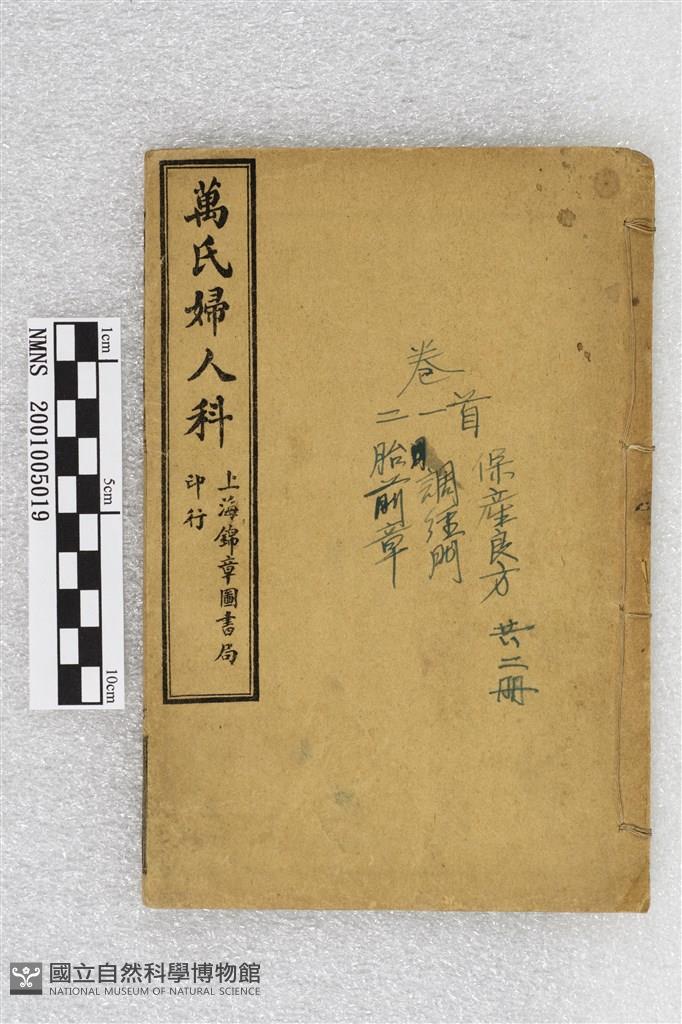 萬氏婦人科
上海錦章圖書局
印行
卷
首 保產良方 共二冊
一 調經門
二 胎前章
NMNS 2001005019
1cm
5cm
10cm
國立自然科學博物館
NATIONAL MUSEUM OF NATURAL SCIENCE